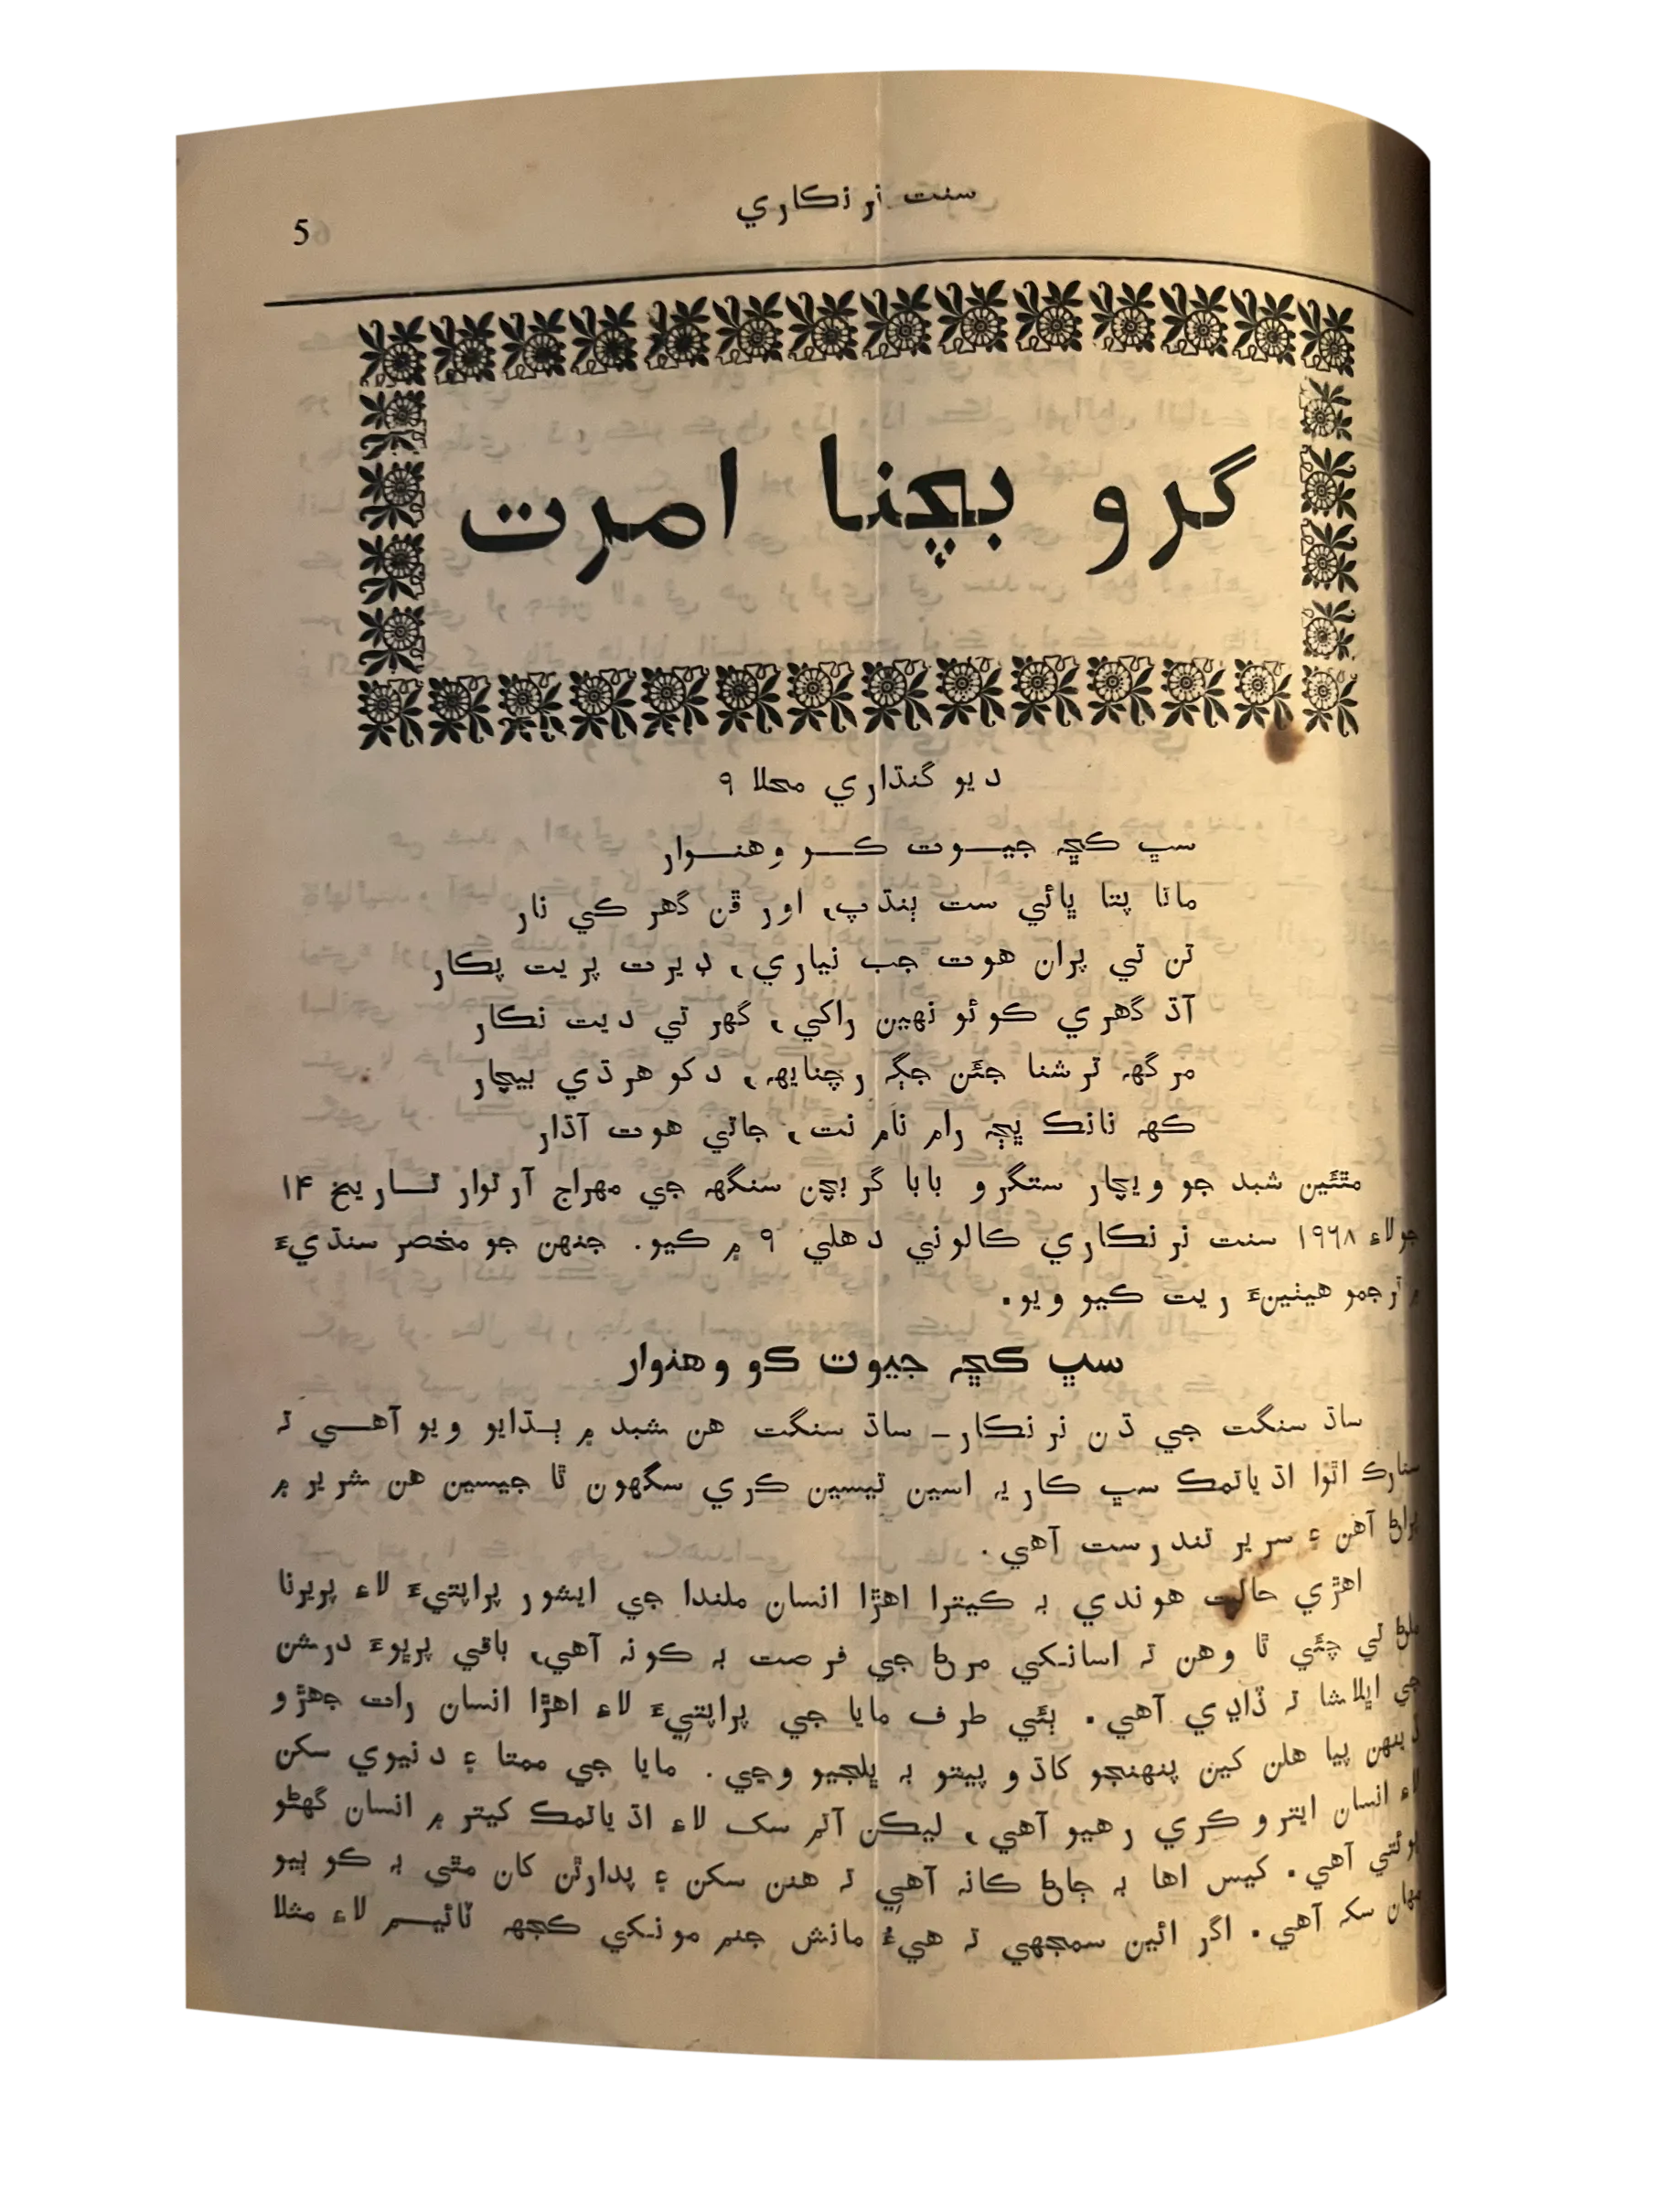 سنت نرنڪاري
5
گرو بچنا امرت
ديو گنڌاري محلا ٩
سڀ ڪڇہ جيوت ڪو وهنوار
ماتا پتا ڀائي ست ٻنڌپ، اور ڦن گهر ڪي نار
تن تي پران هوت جب نياري، ٽيرت پريت پڪار
آڌ گهري ڪوئو نهين راکي، گهر تي ديت نڪار
مرگهہ ترشنا جئن جڳہ رچنايهہ، دکو هردي بيچار
ڪهہ نانڪ ڀڄہ رام نام نت، جاتي هوت آڌار
مٿئين شبد جو ويچار ستگرو بابا گربچن سنگهہ جي مهراج آرتوار تاريخ ۱۴
جولاءِ ۱۹٦۸ سنت نرنڪاري ڪالوني دهلي ٩ ۾ ڪيو. جنهن جو مختصر سنڌيءَ
۾ ترجمو هيٺينءَ ريت ڪيو ويو.
سڀ ڪڇہ جيوت ڪو وهنوار
ساڌ سنگت جي ڌن نرنڪار- ساڌ سنگت هن شبد ۾ ٻڌايو ويو آهي تہ
اٿوا اڌياتمڪ سڀ ڪاريہ اسين تيسين ڪري سگهون ٿا جيسين هن شرير ۾
پراڻ آهن ۽ سرير تندرست آهي.
اهڙي حالت هوندي بہ ڪيترا اهڙا انسان ملندا جي ايشور پراپتيءَ لاءِ پريرنا
ملڻ تي چئي ٿا وهن تہ اسانکي مرڻ جي فرصت بہ ڪونہ آهي، باقي پرڀوءَ درشن
جي اڀلاشا تہ ڏاڍي آهي. ٻئي طرف مايا جي پراپتيءَ لاءِ اهڙا انسان رات جهڙو
ڏينهن پيا هلن کين پنهنجو کاڌو پيتو بہ ڀلجيو وڃي. مايا جي ممتا ۽ دنيوي سکن
لاءِ انسان ايترو ڪري رهيو آهي، ليڪن آتم سک لاءِ اڌياتمڪ کيتر ۾ انسان گهڻو
پوئتي آهي. کيس اها بہ ڄاڻ ڪانہ آهي تہ هنن سکن ۽ پدارٿن کان مٿي بہ ڪو ٻيو
مهان سکہ آهي. اگر ائين سمجهي تہ هيءُ مانش جنم مونکي ڪجهہ ٽائيم لاءِ مثلا